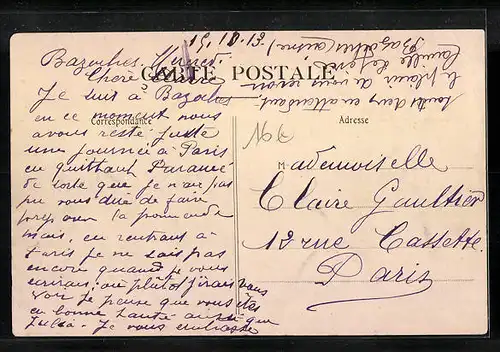 15.10.13
Bazoches. Mercredi
Chère
CARTE POSTALE
Correspondance
Adresse
Je suis à Bazoches
en ce moment nous
avons resté juste
une journée à Paris
en quittant Paramé
de sorte que je n'ai pas
pu vous dire de faire
la promenade
mais, en rentrant à
Paris je ne sais pas
encore quand je vous
écrirai, ou plutôt j'irais vous
voir je pense que vous êtes
en bonne santé ainsi que
Julia. Je vous embrasse
le plaisir de vous revoir
Camille
Bazoches (Aisne)
16e
Mademoiselle
Claire Gaultier
12 rue Cassette
Paris